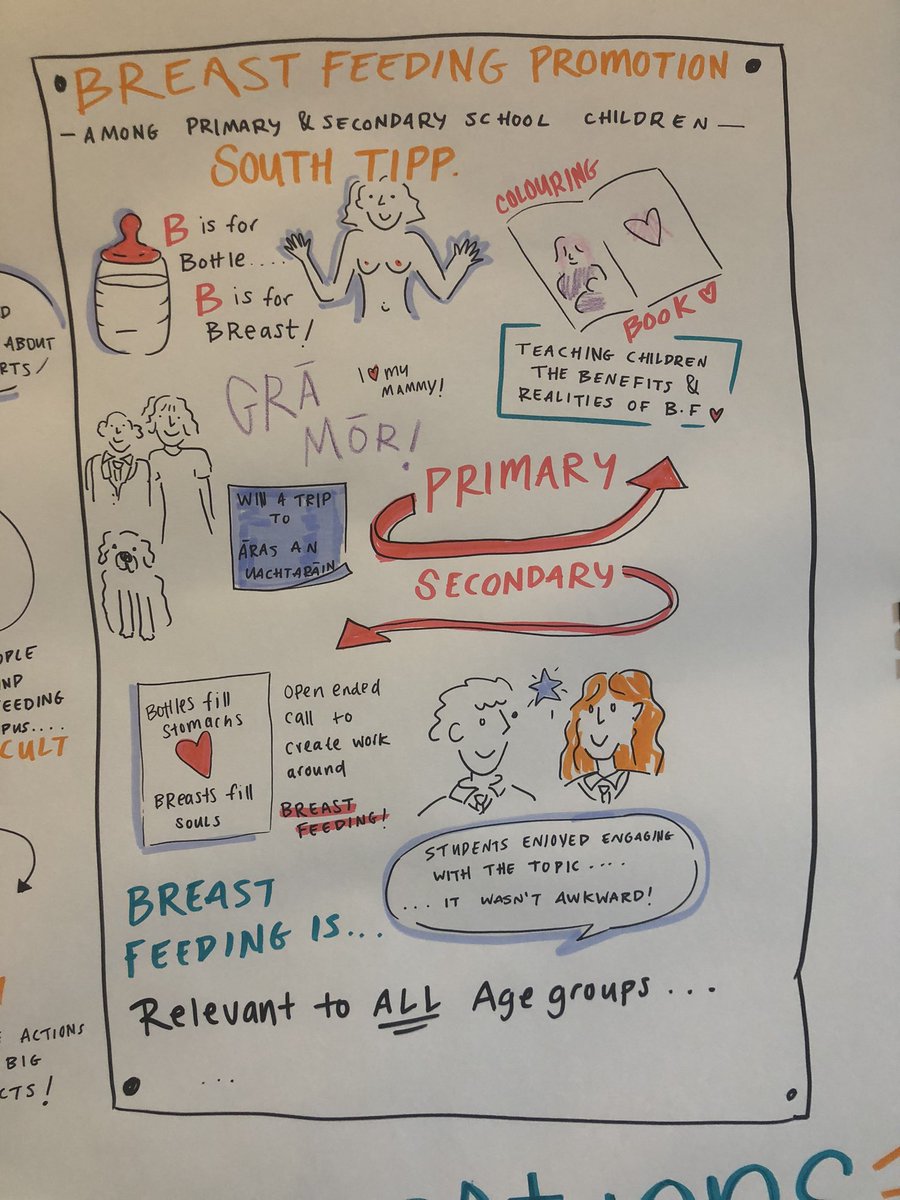 BREAST FEEDING PROMOTION
- AMONG PRIMARY & SECONDARY SCHOOL CHILDREN -
SOUTH TIPP.
B is for
Bottle....
B is for
BReast!
COLOURING
BOOK
TEACHING CHILDREN
THE BENEFITS &
REALITIES OF B.F
GRĀ
MŌR!
I ♥ my
MAMMY!
WIN A TRIP
TO
ĀRAS AN
UACHTARĀIN
PRIMARY
SECONDARY
Bottles fill
Stomachs
BReasts fill
souls
open ended
call to
create work
around
BREAST
FEEDING!
STUDENTS ENJOYED ENGAGING
WITH THE TOPIC....
... IT WASN'T AWKWARD!
BREAST
FEEDING IS...
Relevant to ALL Age groups...
...
ABOUT
ACTIONS
BIG